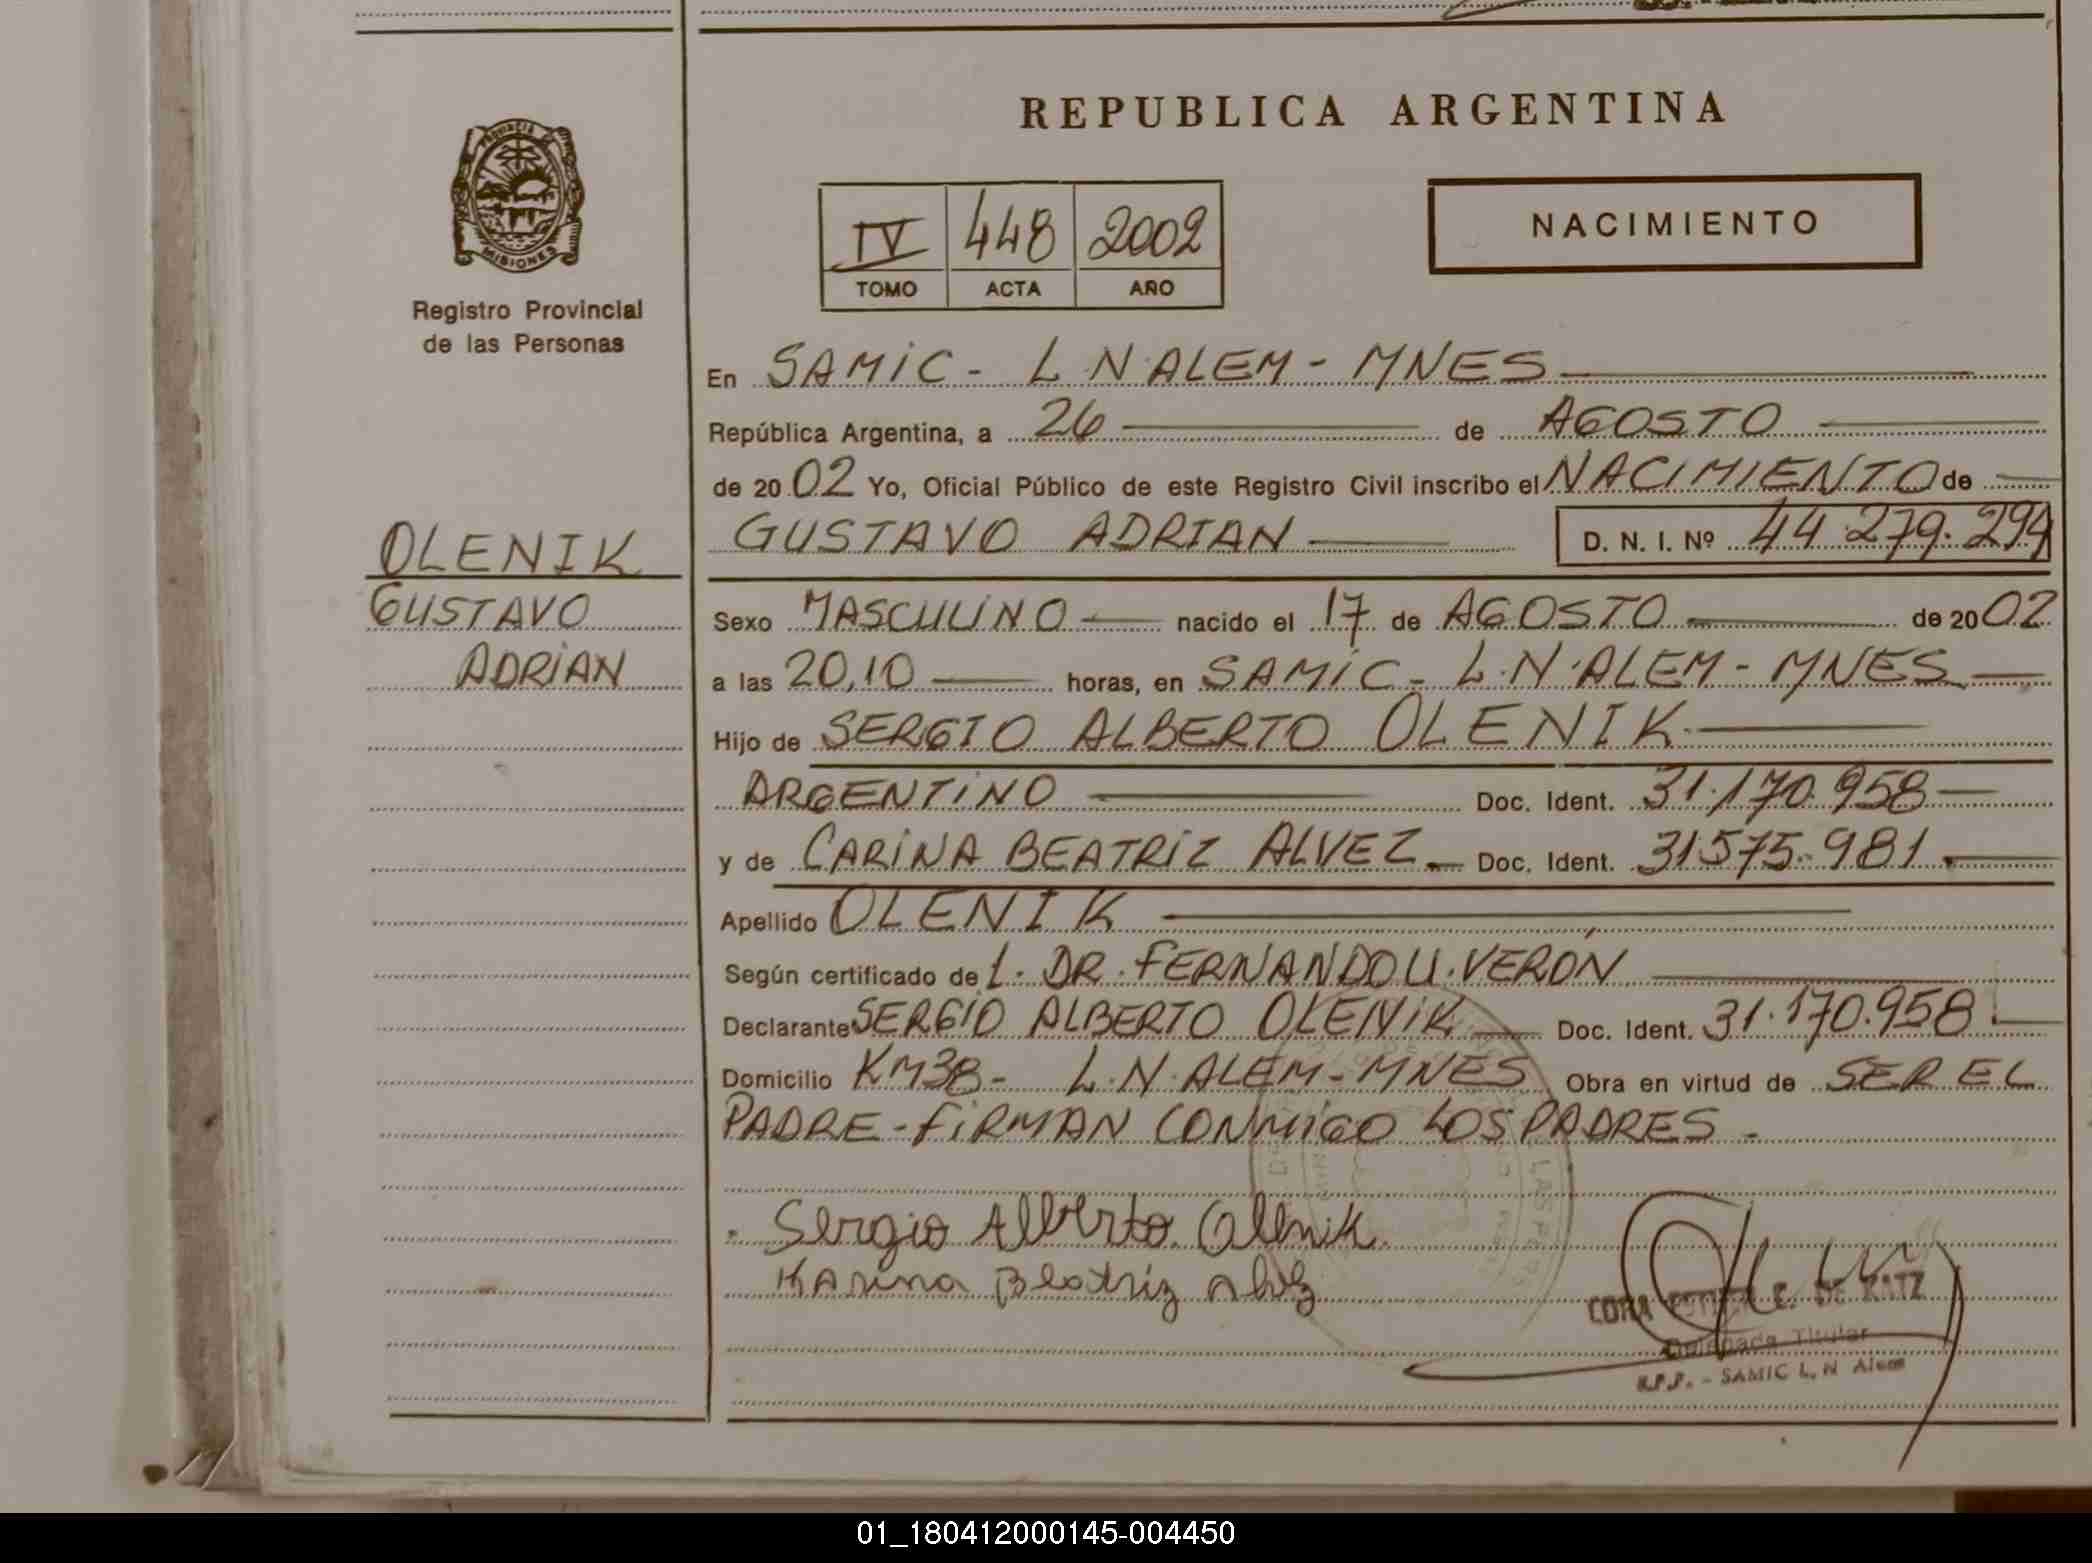 REPUBLICA ARGENTINA
PROVINCIA DE
MISIONES
Registro Provincial
de las Personas
IV 448 2002
TOMO ACTA AÑO
NACIMIENTO
En SAMIC - L N ALEM - MNES
República Argentina, a 26 de AGOSTO
de 2002 Yo, Oficial Público de este Registro Civil inscribo el NACIMIENTO de
GUSTAVO ADRIAN D. N. I. Nº 44.279.294
OLENIK
GUSTAVO
ADRIAN
Sexo MASCULINO nacido el 17 de AGOSTO de 2002
a las 20,10 horas, en SAMIC - L.N.ALEM - MNES
Hijo de SERGIO ALBERTO OLENIK
ARGENTINO Doc. Ident. 31.170.958
y de CARINA BEATRIZ ALVEZ Doc. Ident. 31575.981
Apellido OLENIK
Según certificado de L. DR. FERNANDO U. VERÓN
Declarante SERGIO ALBERTO OLENIK Doc. Ident. 31.170.958
Domicilio KM38 - L.N.ALEM - MNES Obra en virtud de SER EL
PADRE - FIRMAN CONMIGO LOS PADRES -
Sergio Alberto Olenik
Karina Beatriz Alvez
CORA E. DE KATZ
Delegada Titular
R.P.P. - SAMIC L. N Alem
01_180412000145-004450